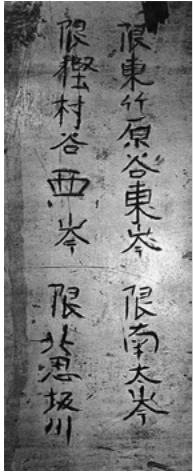 限東竹原谷東岑 限南太岑
限樫村谷西岑 限北思坂川